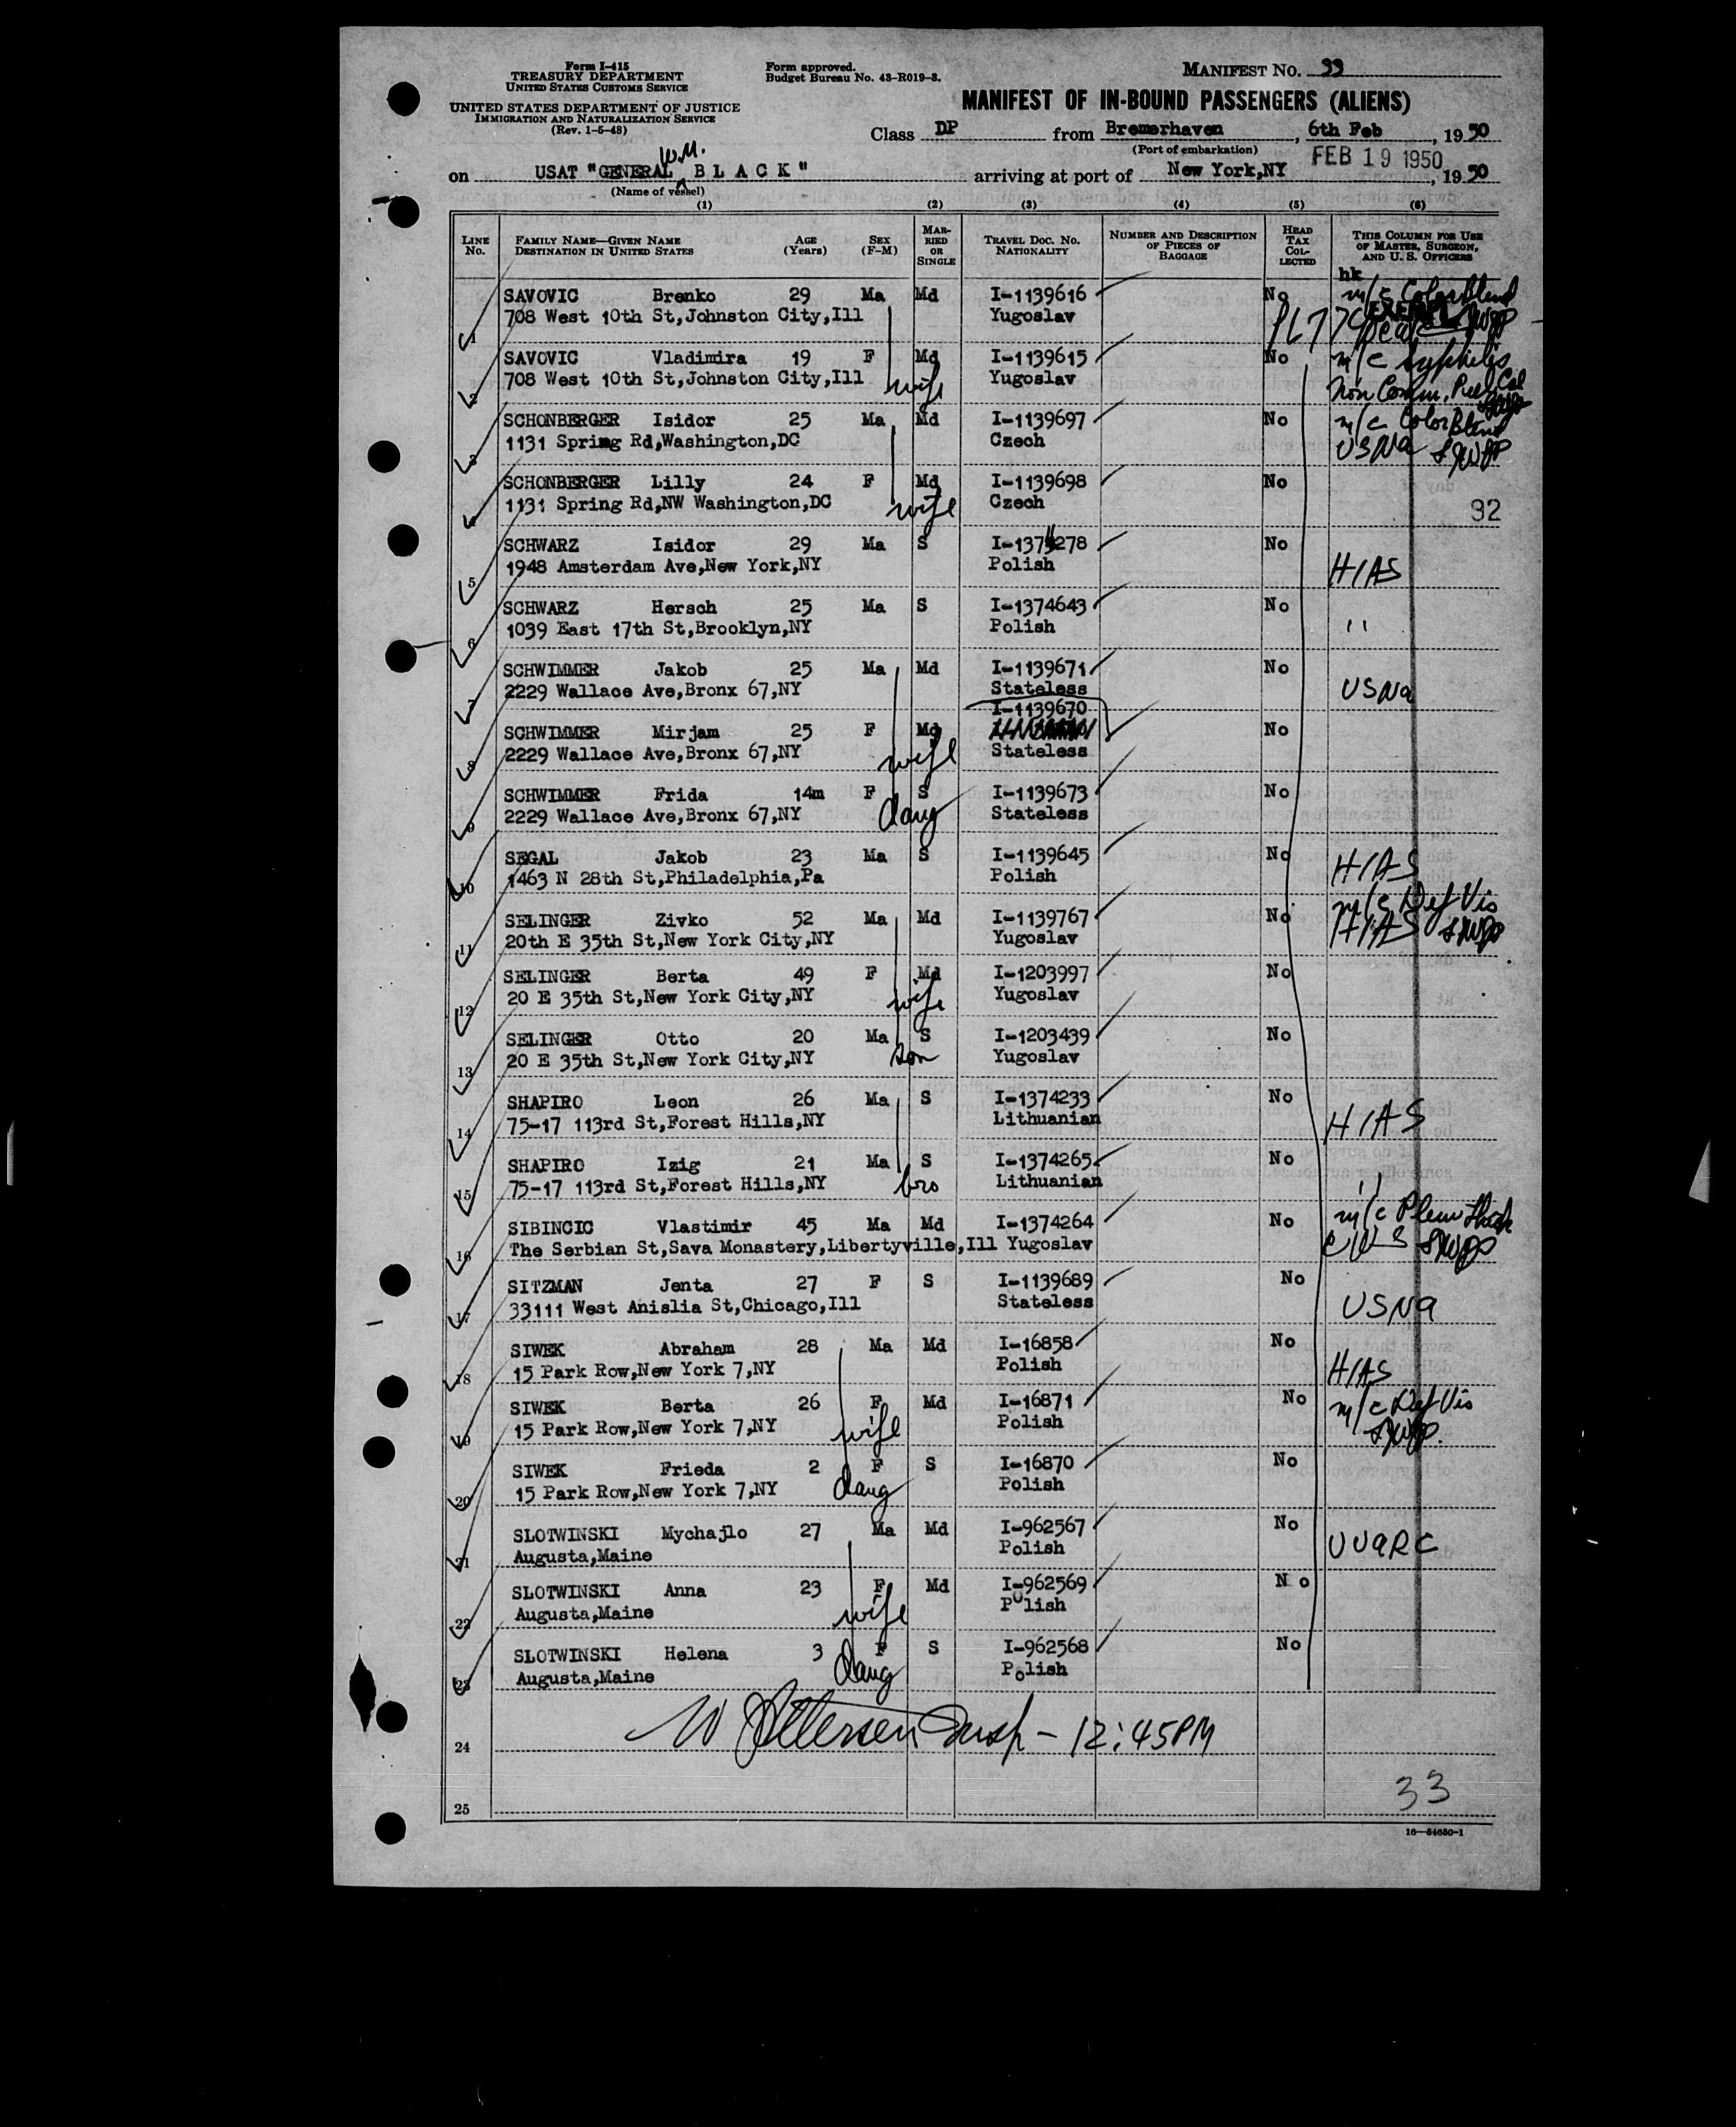 Form I-415
TREASURY DEPARTMENT
UNITED STATES CUSTOMS SERVICE
UNITED STATES DEPARTMENT OF JUSTICE
IMMIGRATION AND NATURALIZATION SERVICE
(Rev. 1-5-48)
Form approved.
Budget Bureau No. 43-R019-3.
MANIFEST NO. 33
MANIFEST OF IN-BOUND PASSENGERS (ALIENS)
Class DP from Bremerhaven, 6th Feb, 1950
(Port of embarkation)
W.M.
on USAT "GENERAL BLACK" arriving at port of New York,NY FEB 19 1950, 1950
(Name of vessel)
(1) (2) (3) (4) (5) (6)
LINE No. FAMILY NAME—GIVEN NAME DESTINATION IN UNITED STATES AGE (Years) SEX (F-M) MARRIED OR SINGLE TRAVEL DOC. NO. NATIONALITY NUMBER AND DESCRIPTION OF PIECES OF BAGGAGE HEAD TAX COLLECTED THIS COLUMN FOR USE OF MASTER, SURGEON, AND U. S. OFFICERS
hk
1 SAVOVIC Brenko 29 Ma Md I-1139616 No m/c Colorblind
708 West 10th St,Johnston City,Ill Yugoslav
2 SAVOVIC Vladimira 19 F Md I-1139615 No m/c Syphilis
708 West 10th St,Johnston City,Ill wife Yugoslav Non Comm,
3 SCHONBERGER Isidor 25 Ma Md I-1139697 No m/c Color Blind
1131 Spring Rd,Washington,DC Czech USNA
4 SCHONBERGER Lilly 24 F Md I-1139698 No
1131 Spring Rd,NW Washington,DC wife Czech 92
5 SCHWARZ Isidor 29 Ma S I-1374278 No
1948 Amsterdam Ave,New York,NY Polish HIAS
6 SCHWARZ Hersch 25 Ma S I-1374643 No
1039 East 17th St,Brooklyn,NY Polish "
7 SCHWIMMER Jakob 25 Ma Md I-1139671 No
2229 Wallace Ave,Bronx 67,NY Stateless USNA
I-1139670
8 SCHWIMMER Mirjam 25 F Md No
2229 Wallace Ave,Bronx 67,NY wife Stateless
9 SCHWIMMER Frida 14m F S I-1139673 No
2229 Wallace Ave,Bronx 67,NY daug Stateless
10 SEGAL Jakob 23 Ma S I-1139645 No HIAS
1463 N 28th St,Philadelphia,Pa Polish
11 SELINGER Zivko 52 Ma Md I-1139767 No m/c Def Vis
20th E 35th St,New York City,NY Yugoslav HIAS
12 SELINGER Berta 49 F Md I-1203997 No
20 E 35th St,New York City,NY wife Yugoslav
13 SELINGER Otto 20 Ma S I-1203439 No
20 E 35th St,New York City,NY son Yugoslav
14 SHAPIRO Leon 26 Ma S I-1374233 No
75-17 113rd St,Forest Hills,NY Lithuanian HIAS
15 SHAPIRO Izig 21 Ma S I-1374265 No
75-17 113rd St,Forest Hills,NY bro Lithuanian "
16 SIBINCIC Vlastimir 45 Ma Md I-1374264 No m/c Pleur thick
The Serbian St,Sava Monastery,Libertyville,Ill Yugoslav CWS
17 SITZMAN Jenta 27 F S I-1139689 No
33111 West Anislia St,Chicago,Ill Stateless USNA
18 SIWEK Abraham 28 Ma Md I-16858 No
15 Park Row,New York 7,NY Polish HIAS
19 SIWEK Berta 26 F Md I-16871 No m/c Def Vis
15 Park Row,New York 7,NY wife Polish
20 SIWEK Frieda 2 F S I-16870 No
15 Park Row,New York 7,NY daug Polish
21 SLOTWINSKI Mychajlo 27 Ma Md I-962567 No
Augusta,Maine Polish UUARC
22 SLOTWINSKI Anna 23 F Md I-962569 No
Augusta,Maine wife Polish
23 SLOTWINSKI Helena 3 F S I-962568 No
Augusta,Maine daug Polish
24 W Insp - 12:45PM
33
25
16—54650-1